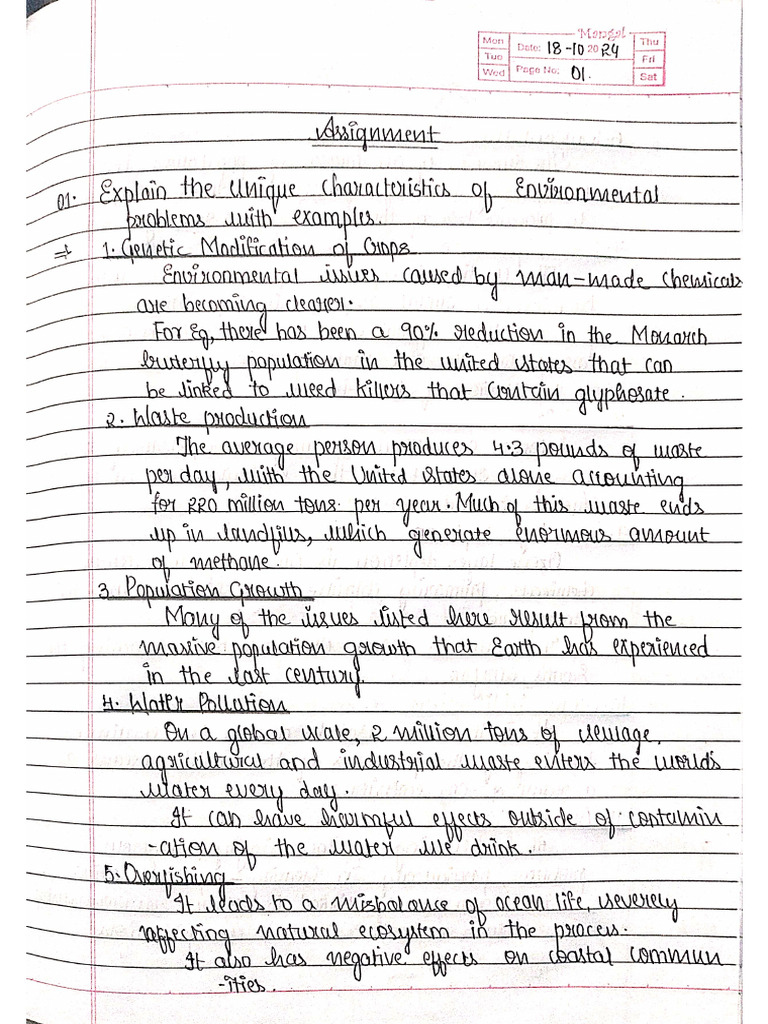 Mangal
Mon Date: 18-10 2024 Thu
Tue Fri
Wed Page No: 01. Sat
Assignment
01. Explain the Unique characteristics of Environmental
problems with examples.
⇒ 1. Genetic Modification of Crops
Environmental issues caused by man-made chemicals
are becoming clearer.
For Eg, there has been a 90% reduction in the Monarch
butterfly population in the united states that can
be linked to weed killers that contain glyphosate.
2. Waste production
The average person produces 4.3 pounds of waste
per day, with the United States alone accounting
for 220 million tons per year. Much of this waste ends
up in landfills, which generate enormous amount
of methane.
3. Population Growth
Many of the issues listed here result from the
massive population growth that Earth has experienced
in the last century.
4. Water Pollution
On a global scale, 2 million tons of sewage,
agricultural and industrial waste enters the world's
water every day.
It can have harmful effects outside of contamin
-ation of the water we drink.
5. Overfishing
It leads to a misbalance of ocean life, severely
affecting natural ecosystem in the process.
It also has negative effects on coastal commun
-ities.